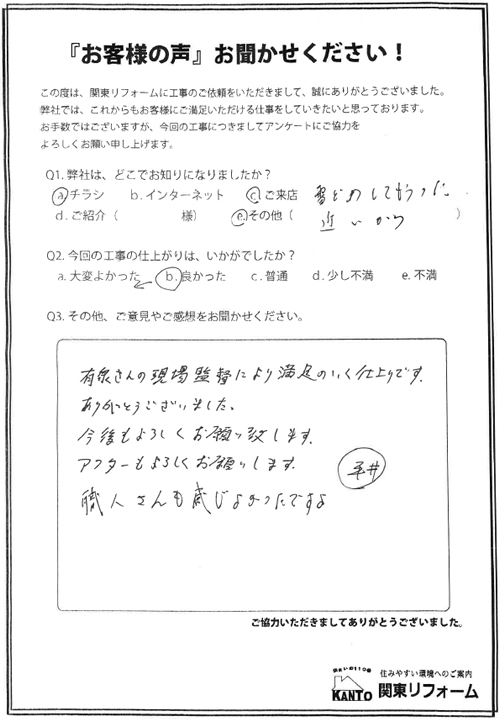 『お客様の声』お聞かせください！
この度は、関東リフォームに工事のご依頼をいただきまして、誠にありがとうございました。
弊社では、これからもお客様にご満足いただける仕事をしていきたいと思っております。
お手数ではございますが、今回の工事につきましてアンケートにご協力を
よろしくお願い申し上げます。
Q1. 弊社は、どこでお知りになりましたか？
a. チラシ　b. インターネット　c. ご来店
d. ご紹介（　様）　e. その他（近いから）
Q2. 今回の工事の仕上がりは、いかがでしたか？
a. 大変よかった　b. 良かった　c. 普通　d. 少し不満　e. 不満
Q3. その他、ご意見やご感想をお聞かせください。
有泉さんの現場監督により満足のいく仕上りです。
ありがとうございました。
今後もよろしくお願い致します。
アフターもよろしくお願いします。
平井
職人さんも感じよかったですよ
ご協力いただきましてありがとうございました。
住みやすい環境へのご案内
KANTO 関東リフォーム